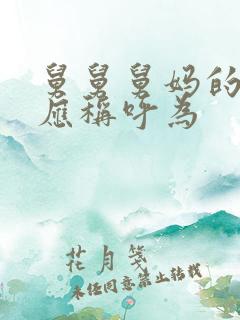 舅舅舅妈的
应称呼为
花月笺
未经同意禁止转载